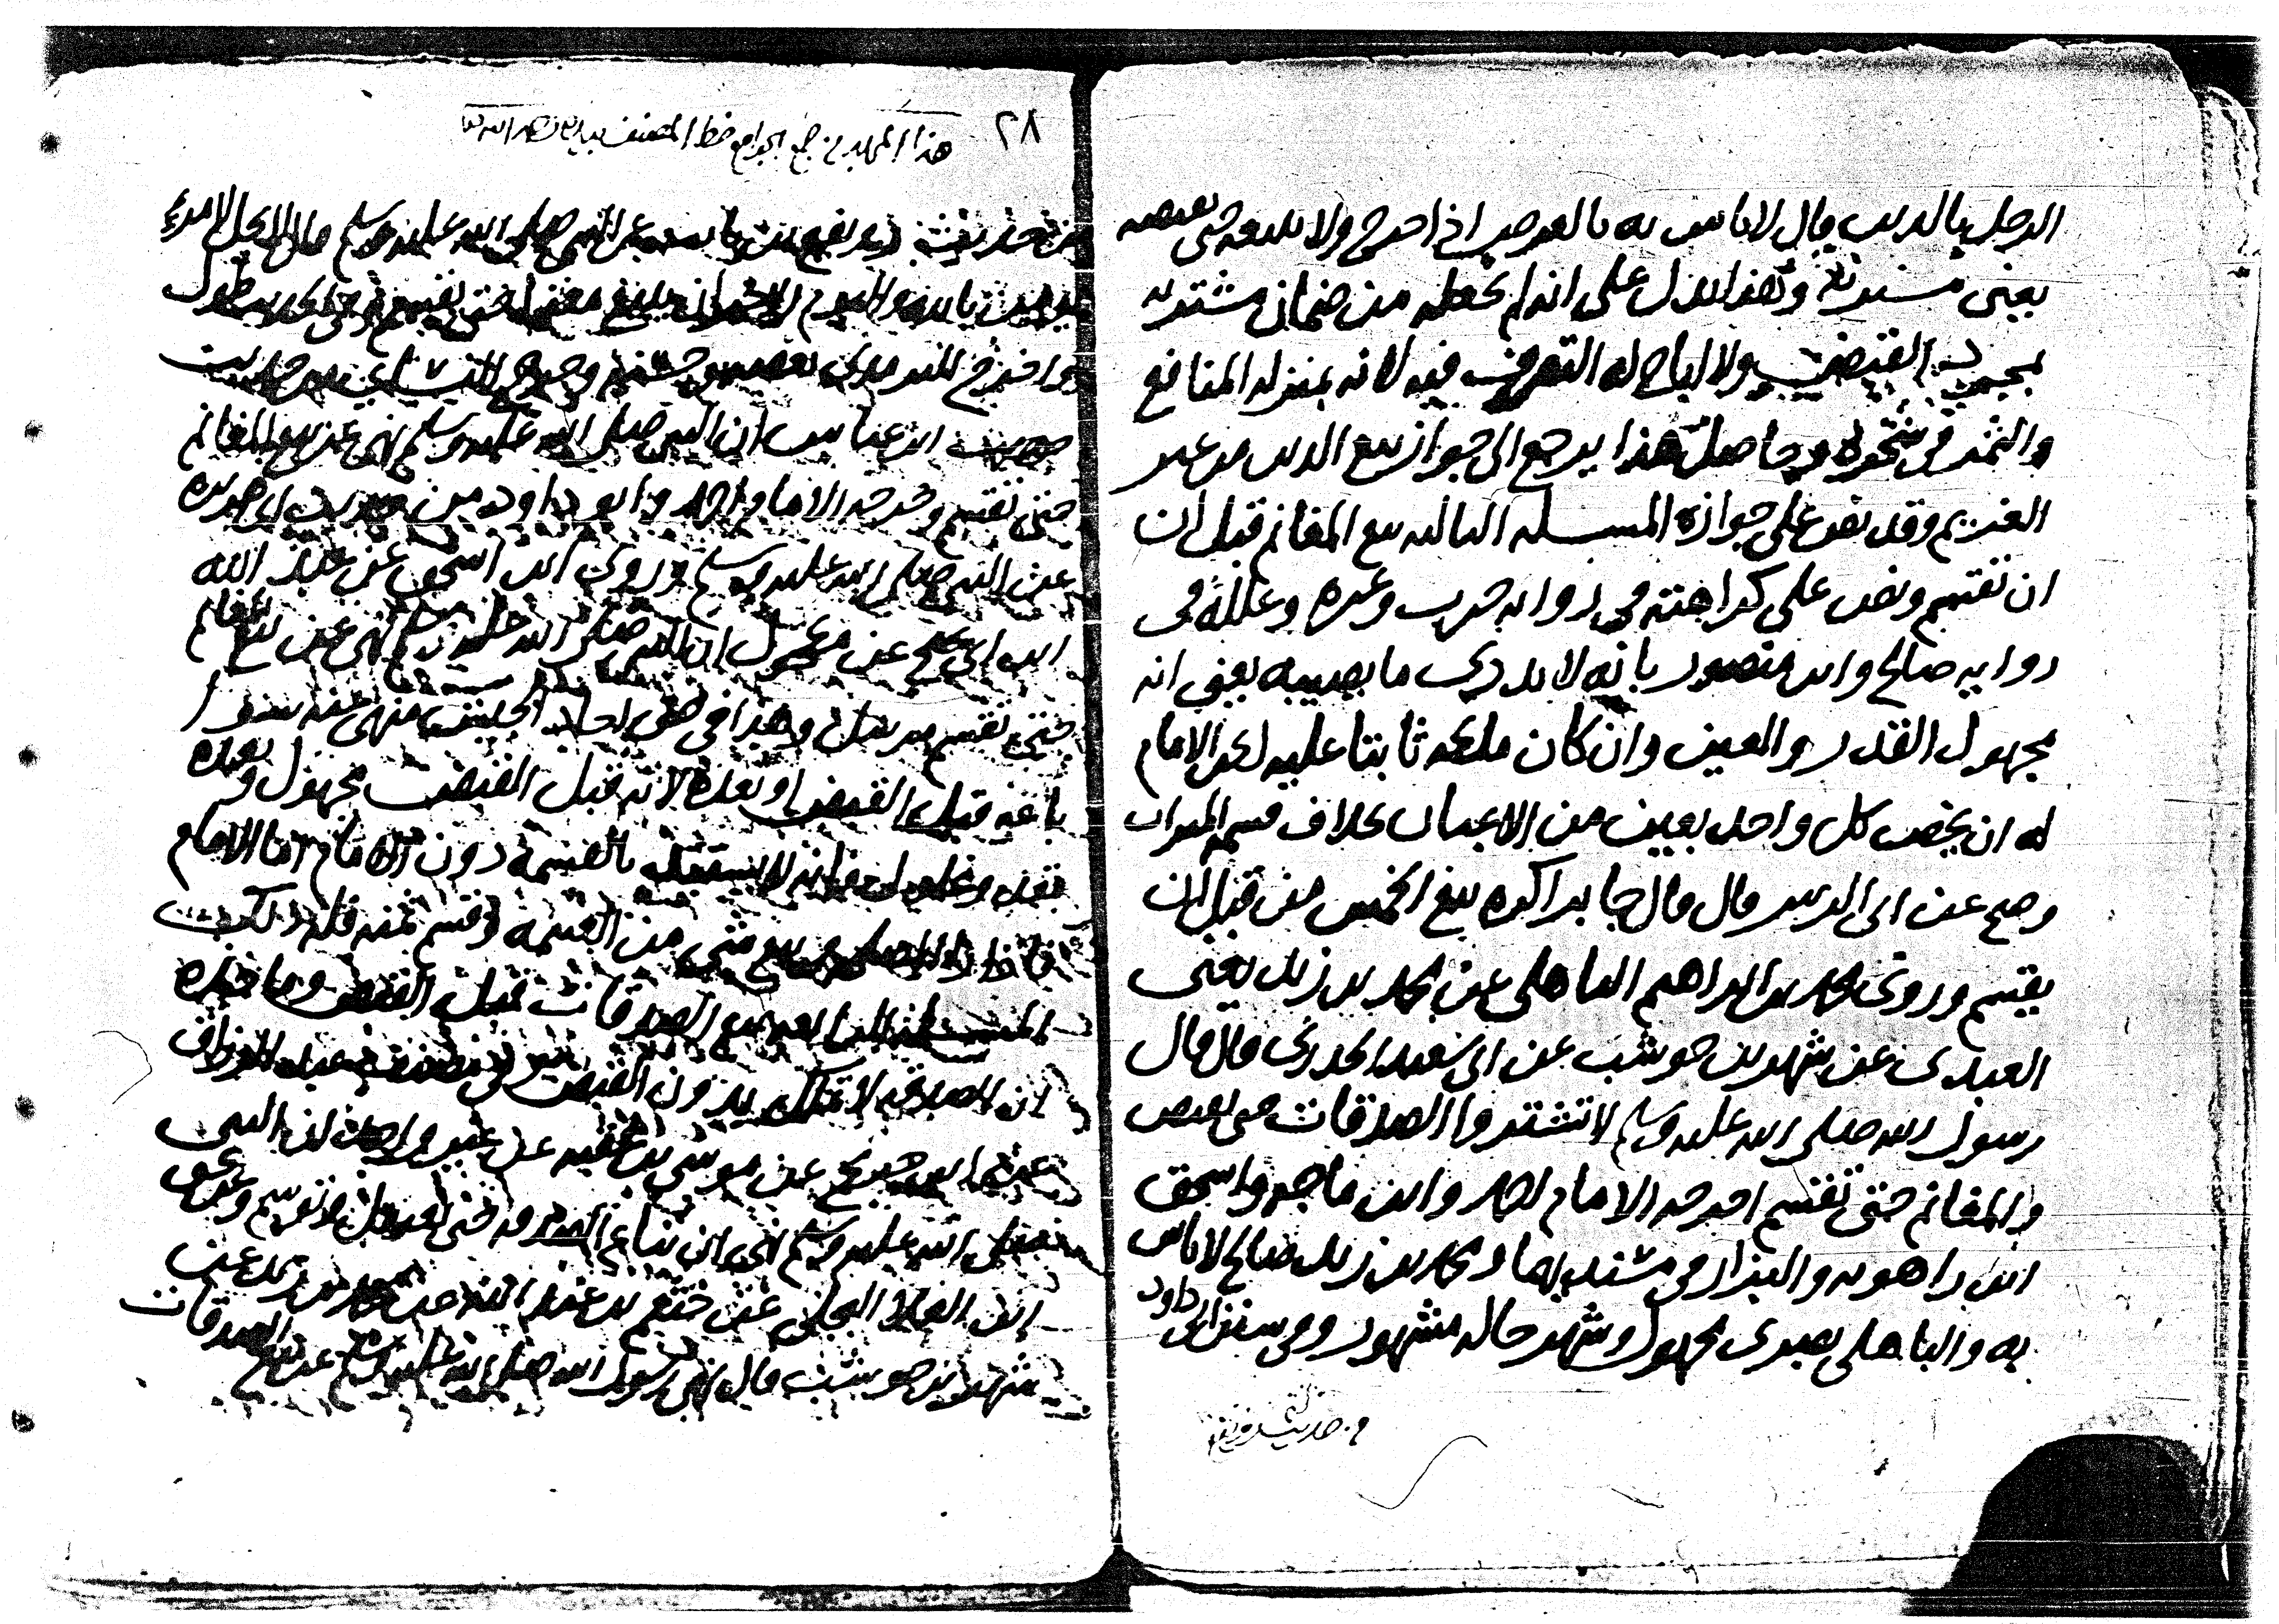 الرجل بالدين قال لا باس به بالعرض اذا خرج ولا يبيعه حتى يقبضه
يعنى مشتريه وهذا يدل على انه لم يجعله من ضمان مشتريه
بمجرد القبض ولا اباح له التصرف فيه لانه بمنزله المنافع
والثمر في شجره وحاصل هذا يرجع الى جواز بيع الدين من غير
الغريم وقد نص على جوازه المسـله الثالثه بيع المغانم قبل ان
ان تقسم ونص على كراهته في روايه حرب وغيره وعلله في
روايه صالح وابن منصور بانه لا يدري ما يصيبه يعنى انه
مجهول القدر والعين وان كان ملكه ثابتا عليه لكن الامام
له ان يخص كل واحد بعين من الاعيان بخلاف قسمه الميراث
وصح عن ابى الزبير قال قال جابر اكره بيع الخمس من قبل ان
يقسم وروى محمد بن ابراهيم الباهلى عن محمد بن زيد يعنى
العبدى عن شهر بن حوشب عن ابى سعيد الخدرى قال قال
رسول الله صلى الله عليه وسلم لا تشتروا الصدقات حتى تقبض
والمغانم حتى تقسم اخرجه الامام احمد وابن ماجه واسحق
ابن راهويه والبزار في مسنديهما ومحمد بن زيد صالح لا باس
به والباهلى بصرى مجهول وشهر حاله مشهور وفي سنن ابى داود
من حديث رويفع
٢٨
هذا المجلد من جمع الجوامع خط المصنف
عن النبى صلى الله عليه وسلم قال لا يحل لامرئ
يومن بالله واليوم الاخر ان يبيع مغنما حتى يقسم
واخرج الترمذى بعضه وحسنه وخرج النسائى من حديث
ابن عباس ان النبى صلى الله عليه وسلم نهى عن بيع المغانم
حتى تقسم وخرجه الامام احمد وابو داود من حديث ابى هريره
عن النبى صلى الله عليه وسلم وروى ابن اسحق عن عبد الله
ابن ابى نجيح عن مكحول ان النبى صلى الله عليه وسلم نهى عن بيع المغانم
حتى تقسم مرسل وهذا في حق احاد الجيش منهى عنه سوا
باعه قبل القبض او بعده لانه قبل القبض مجهول وبعده
بالقسمه دون الامام اما الامام
فاذا راى المصلحه في بيع شى من الغنيمه وقسم ثمنه فله ذلك
المسـله الرابعه بيع الصدقات قبل القبض
لان الصدقه لا تملك بدون القبض
ابن جريج عن موسى بن عقبه عن غير واحد ان النبى
صلى الله عليه وسلم نهى ان تباع الصدقه حتى تعقل وتوسم وعن يحيى
ابن العلا البجلى عن جهضم بن عبد الله عن محمد بن زيد عن
شهر بن حوشب قال نهى رسول الله صلى الله عليه وسلم عن بيع الصدقات